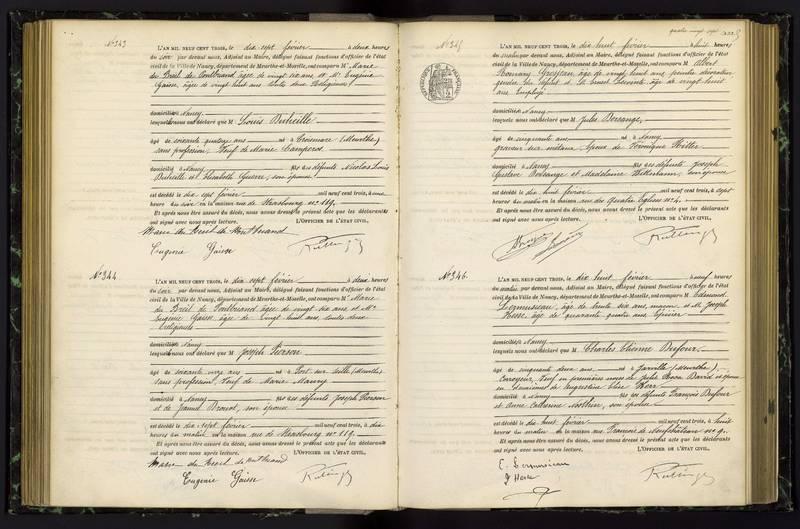 N° 343
L'AN MIL NEUF CENT TROIS, le dix sept février à deux heures
du soir par devant nous, Adjoint au Maire, délégué faisant fonctions d'officier de l'état
civil de la Ville de Nancy, département de Meurthe-et-Moselle, ont comparu M Marie
du Breil de Pontbriand âgée de vingt six ans et Mlle Eugénie
Gaisse, âgée de vingt huit ans toutes deux Religieuses
domiciliés à Nancy
lesquels nous ont déclaré que M Louis Dutreille
âgé de soixante quatorze ans né à Croismare (Meurthe)
sans profession, Veuf de Marie
domicilié à Nancy fils des défunts Nicolas Louis
Dutreille et Elisabeth Guerre, son épouse
est décédé le dix sept février mil neuf cent trois, à une
heure du soir en la maison rue de Strasbourg n° 119.
Et après nous être assuré du décès, nous avons dressé le présent acte que les déclarants
ont signé avec nous après lecture. L'OFFICIER DE L'ÉTAT CIVIL,
Marie du Breil de Pontbriand
Eugénie Gaisse
N° 344
L'AN MIL NEUF CENT TROIS, le dix sept février à deux heures
du soir par devant nous, Adjoint au Maire, délégué faisant fonctions d'officier de l'état
civil de la Ville de Nancy, département de Meurthe-et-Moselle, ont comparu M Marie
du Breil de Pontbriand âgée de vingt six ans et Mlle
Eugénie Gaisse âgée de vingt huit ans, toutes deux
religieuses
domiciliés à Nancy
lesquels nous ont déclaré que M Joseph Pierson
âgé de soixante onze ans né à Port sur Seille (Meurthe)
sans profession, Veuf de Marie Maury
domicilié à Nancy fils des défunts Joseph Pierson
et de Jeanne son épouse
est décédé le dix sept février mil neuf cent trois, à dix
heures du matin en la maison rue de Strasbourg n° 119.
Et après nous être assuré du décès, nous avons dressé le présent acte que les déclarants
ont signé avec nous après lecture. L'OFFICIER DE L'ÉTAT CIVIL,
Marie du Breil de Pontbriand
Eugénie Gaisse
quatre vingt sept
N° 345
L'AN MIL NEUF CENT TROIS, le dix huit février à huit heures
du matin par devant nous, Adjoint au Maire, délégué faisant fonctions d'officier de l'état
civil de la Ville de Nancy, département de Meurthe-et-Moselle, ont comparu M Albert
Romain Grosjean âgé de vingt huit ans peintre décorateur
gendre du défunt et Ernest âgé de vingt huit
ans Employé
domiciliés à Nancy
lesquels nous ont déclaré que M Jules
âgé de cinquante ans né à Nancy
graveur sur métaux, époux de Véronique
domicilié à Nancy fils des défunts Joseph
Gustave et Madeleine son épouse
est décédé le dix huit février mil neuf cent trois, à sept
heures du matin en la maison rue des Quatre Eglises n° 4.
Et après nous être assuré du décès, nous avons dressé le présent acte que les déclarants
ont signé avec nous après lecture. L'OFFICIER DE L'ÉTAT CIVIL,
N° 346.
L'AN MIL NEUF CENT TROIS, le dix huit février à neuf heures
du matin par devant nous, Adjoint au Maire, délégué faisant fonctions d'officier de l'état
civil de la Ville de Nancy, département de Meurthe-et-Moselle, ont comparu M Edmond
âgé de trente six ans, maçon et M Joseph
Hesse, âgé de quarante quatre ans épicier
domiciliés à Nancy
lesquels nous ont déclaré que M Charles Etienne Dufour
âgé de cinquante deux ans né à Jarville (Meurthe),
Corroyeur, Veuf en premières noces de Julie Rosa David et époux
en deuxièmes de Augustine Kerr
domicilié à Nancy fils des défunts François Dufour
et Anne Catherine son épouse
est décédé le dix huit février mil neuf cent trois, à huit
heures du matin en la maison rue François de Neufchâteau n° 9.
Et après nous être assuré du décès, nous avons dressé le présent acte que les déclarants
ont signé avec nous après lecture. L'OFFICIER DE L'ÉTAT CIVIL,
J Hesse